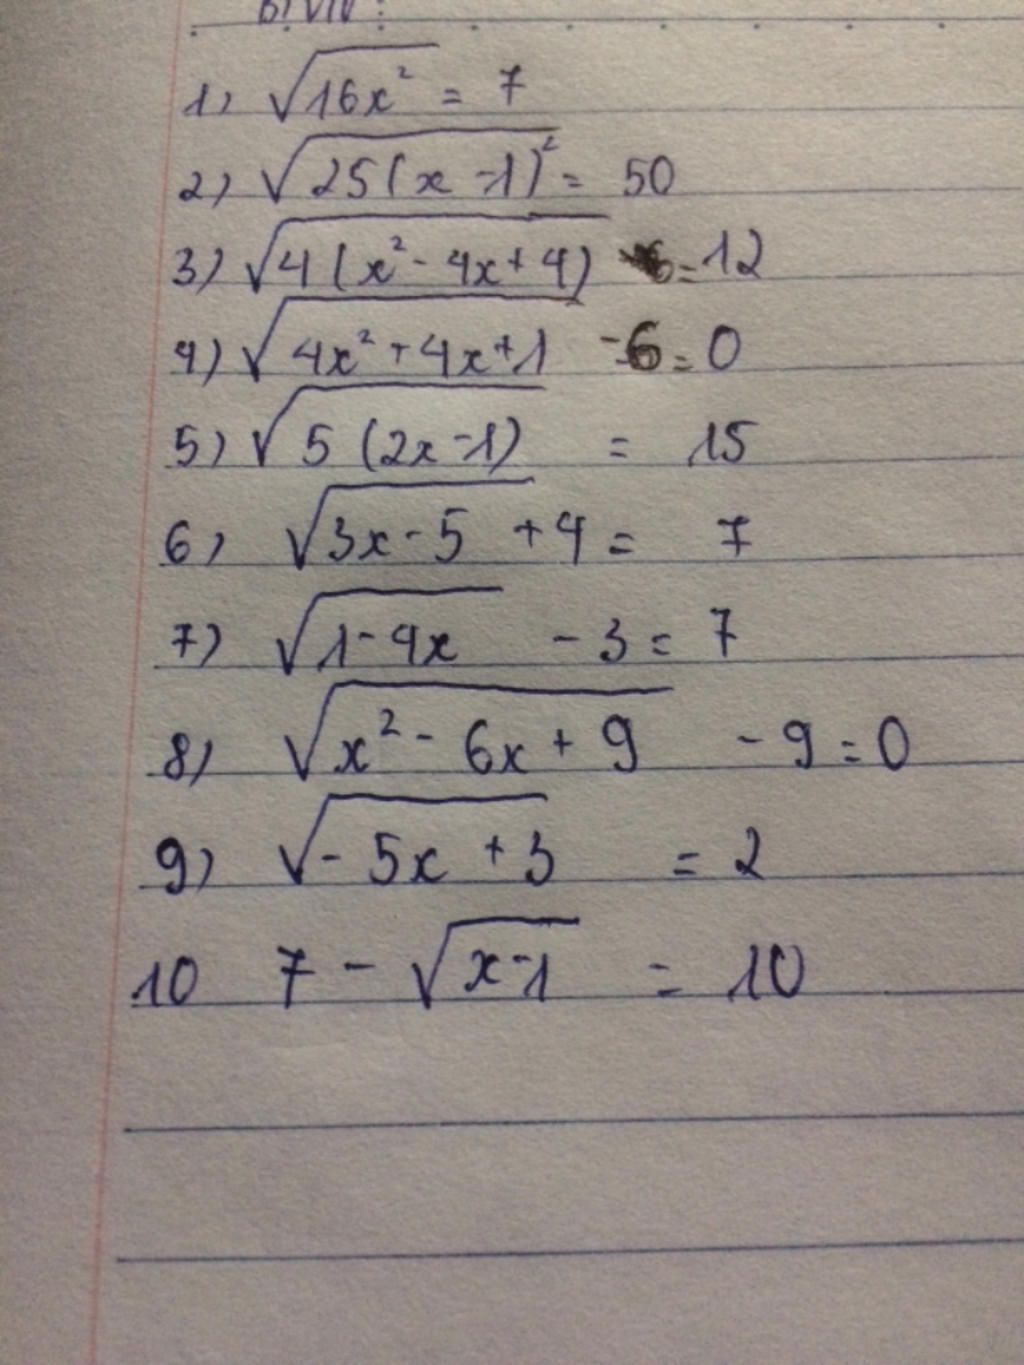 1) √16x² = 7
2) √25(x-1)² = 50
3) √4(x²-4x+4) = 12
4) √4x²+4x+1 -6=0
5) √5(2x-1) = 15
6) √3x-5 +4 = 7
7) √1-4x -3 = 7
8) √x²-6x+9 -9=0
9) √-5x+3 = 2
10 7-√x-1 = 10